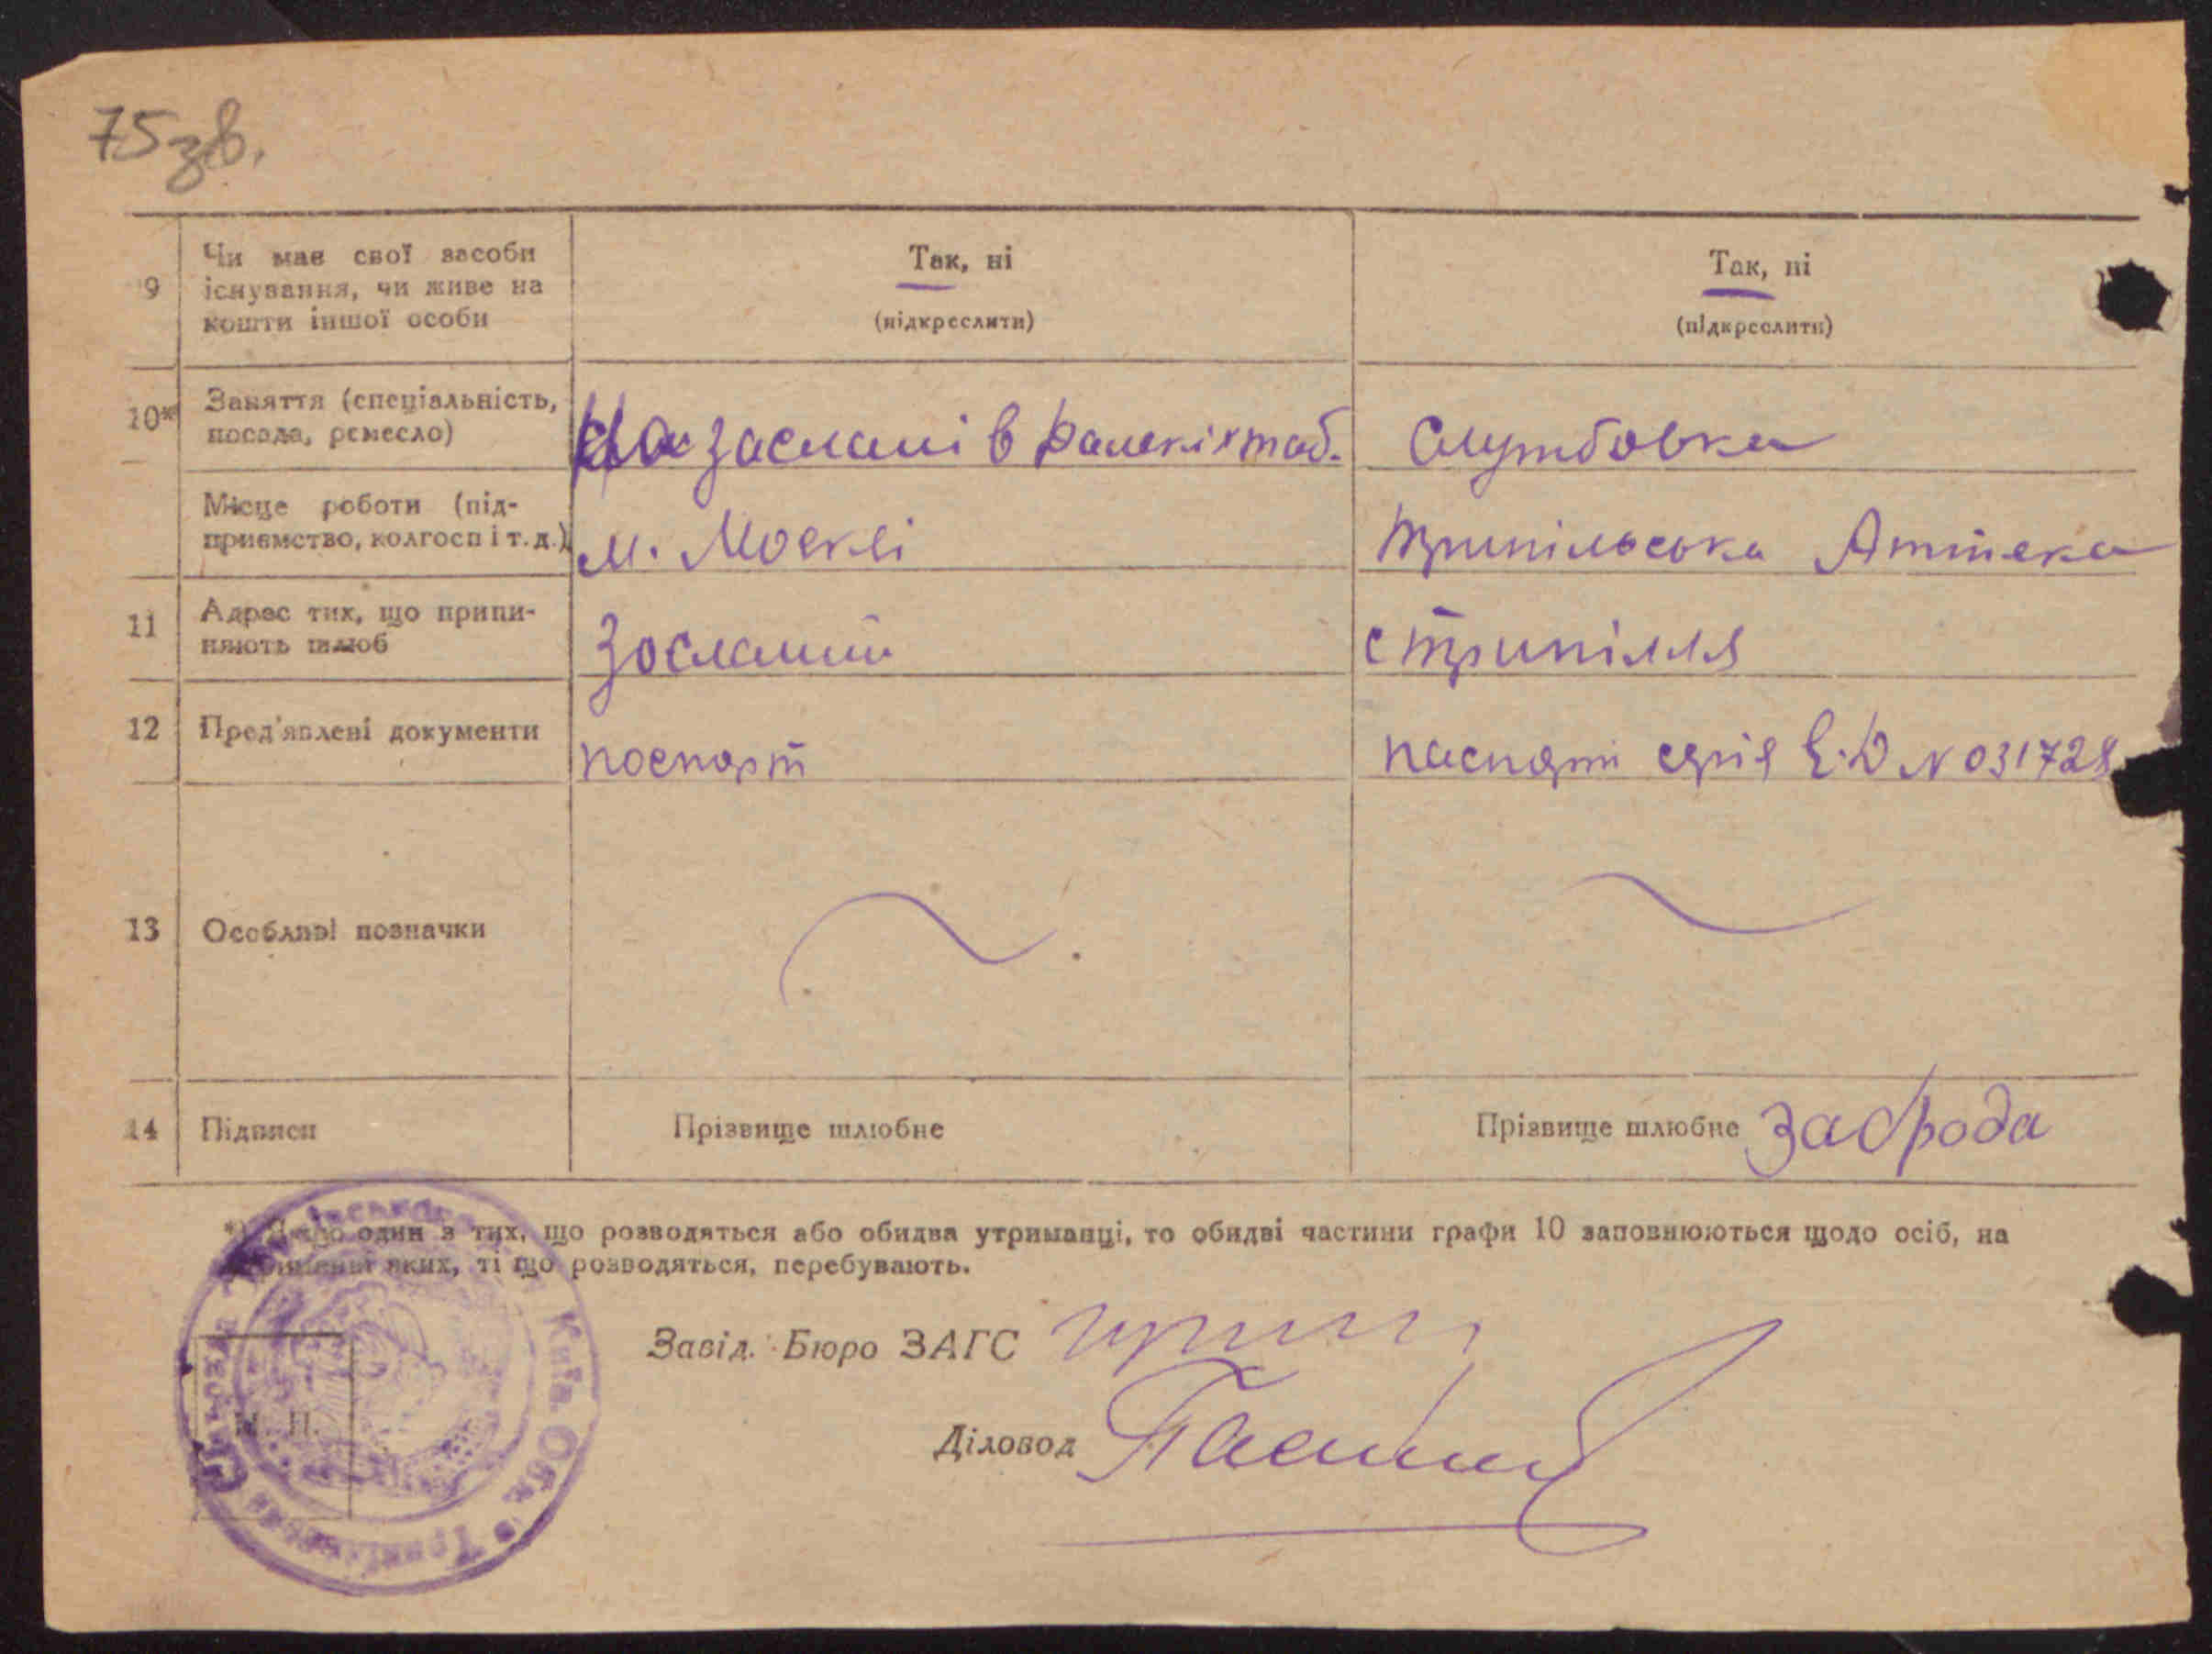 75зв.
9 Чи має свої засоби існування, чи живе на кошти іншої особи
Так, ні
(підкреслити)
Так, ні
(підкреслити)
10*) Заняття (спеціальність, посада, ремесло)
На заслані в далекіх таб.
Службовка
Місце роботи (підприємство, колгосп і т. д.)
м. Москві
Трипільська Аптека
11 Адрес тих, що припиняють шлюб
Зосланий
с Трипілля
12 Пред'явлені документи
поспорт
паспорт серія Е.Д N 031728
13 Особливі позначки
14 Підписи
Прізвище шлюбне
Прізвище шлюбне Заброда
*) Якщо один з тих, що розводяться або обидва утриманці, то обидві частини графи 10 заповнюються щодо осіб, на
яких, ті що розводяться, перебувають.
Завід. Бюро ЗАГС
Діловод
М. П.
Київ. Обл.